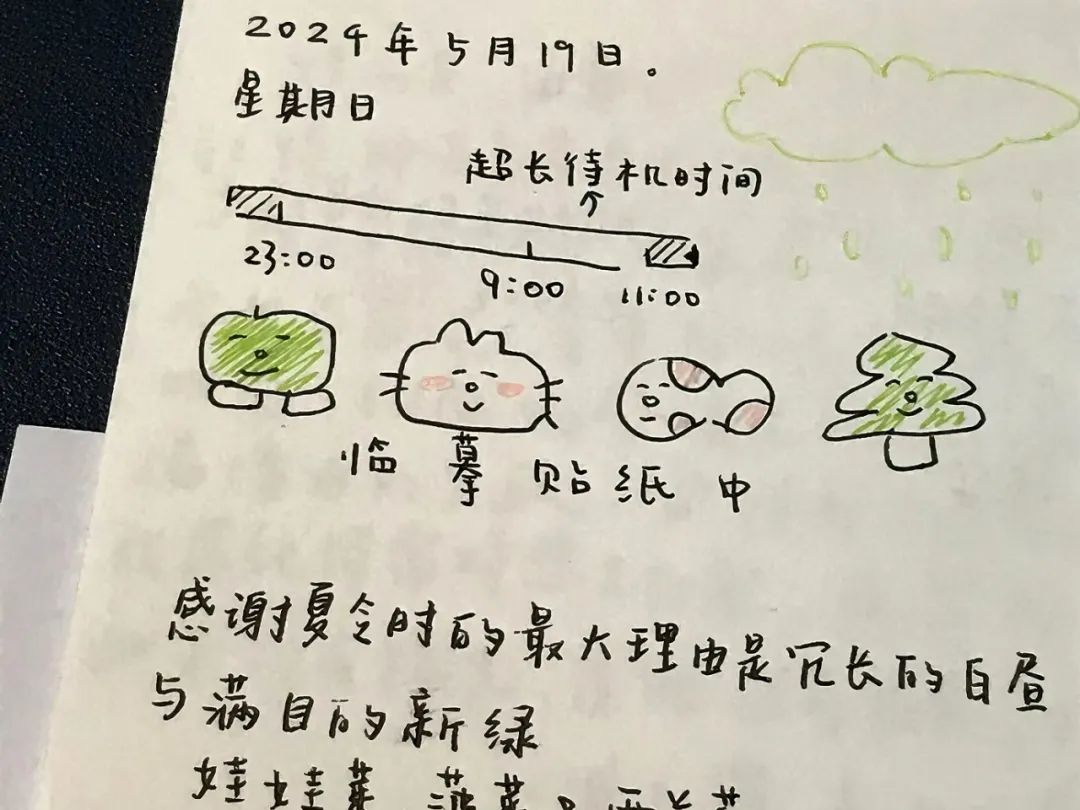 2024年5月19日。
星期日
超长待机时间
23:00
9:00
11:00
临摹贴纸中
感谢夏令时的最大理由是冗长的白昼
与满目的新绿
娃娃菜 菠菜